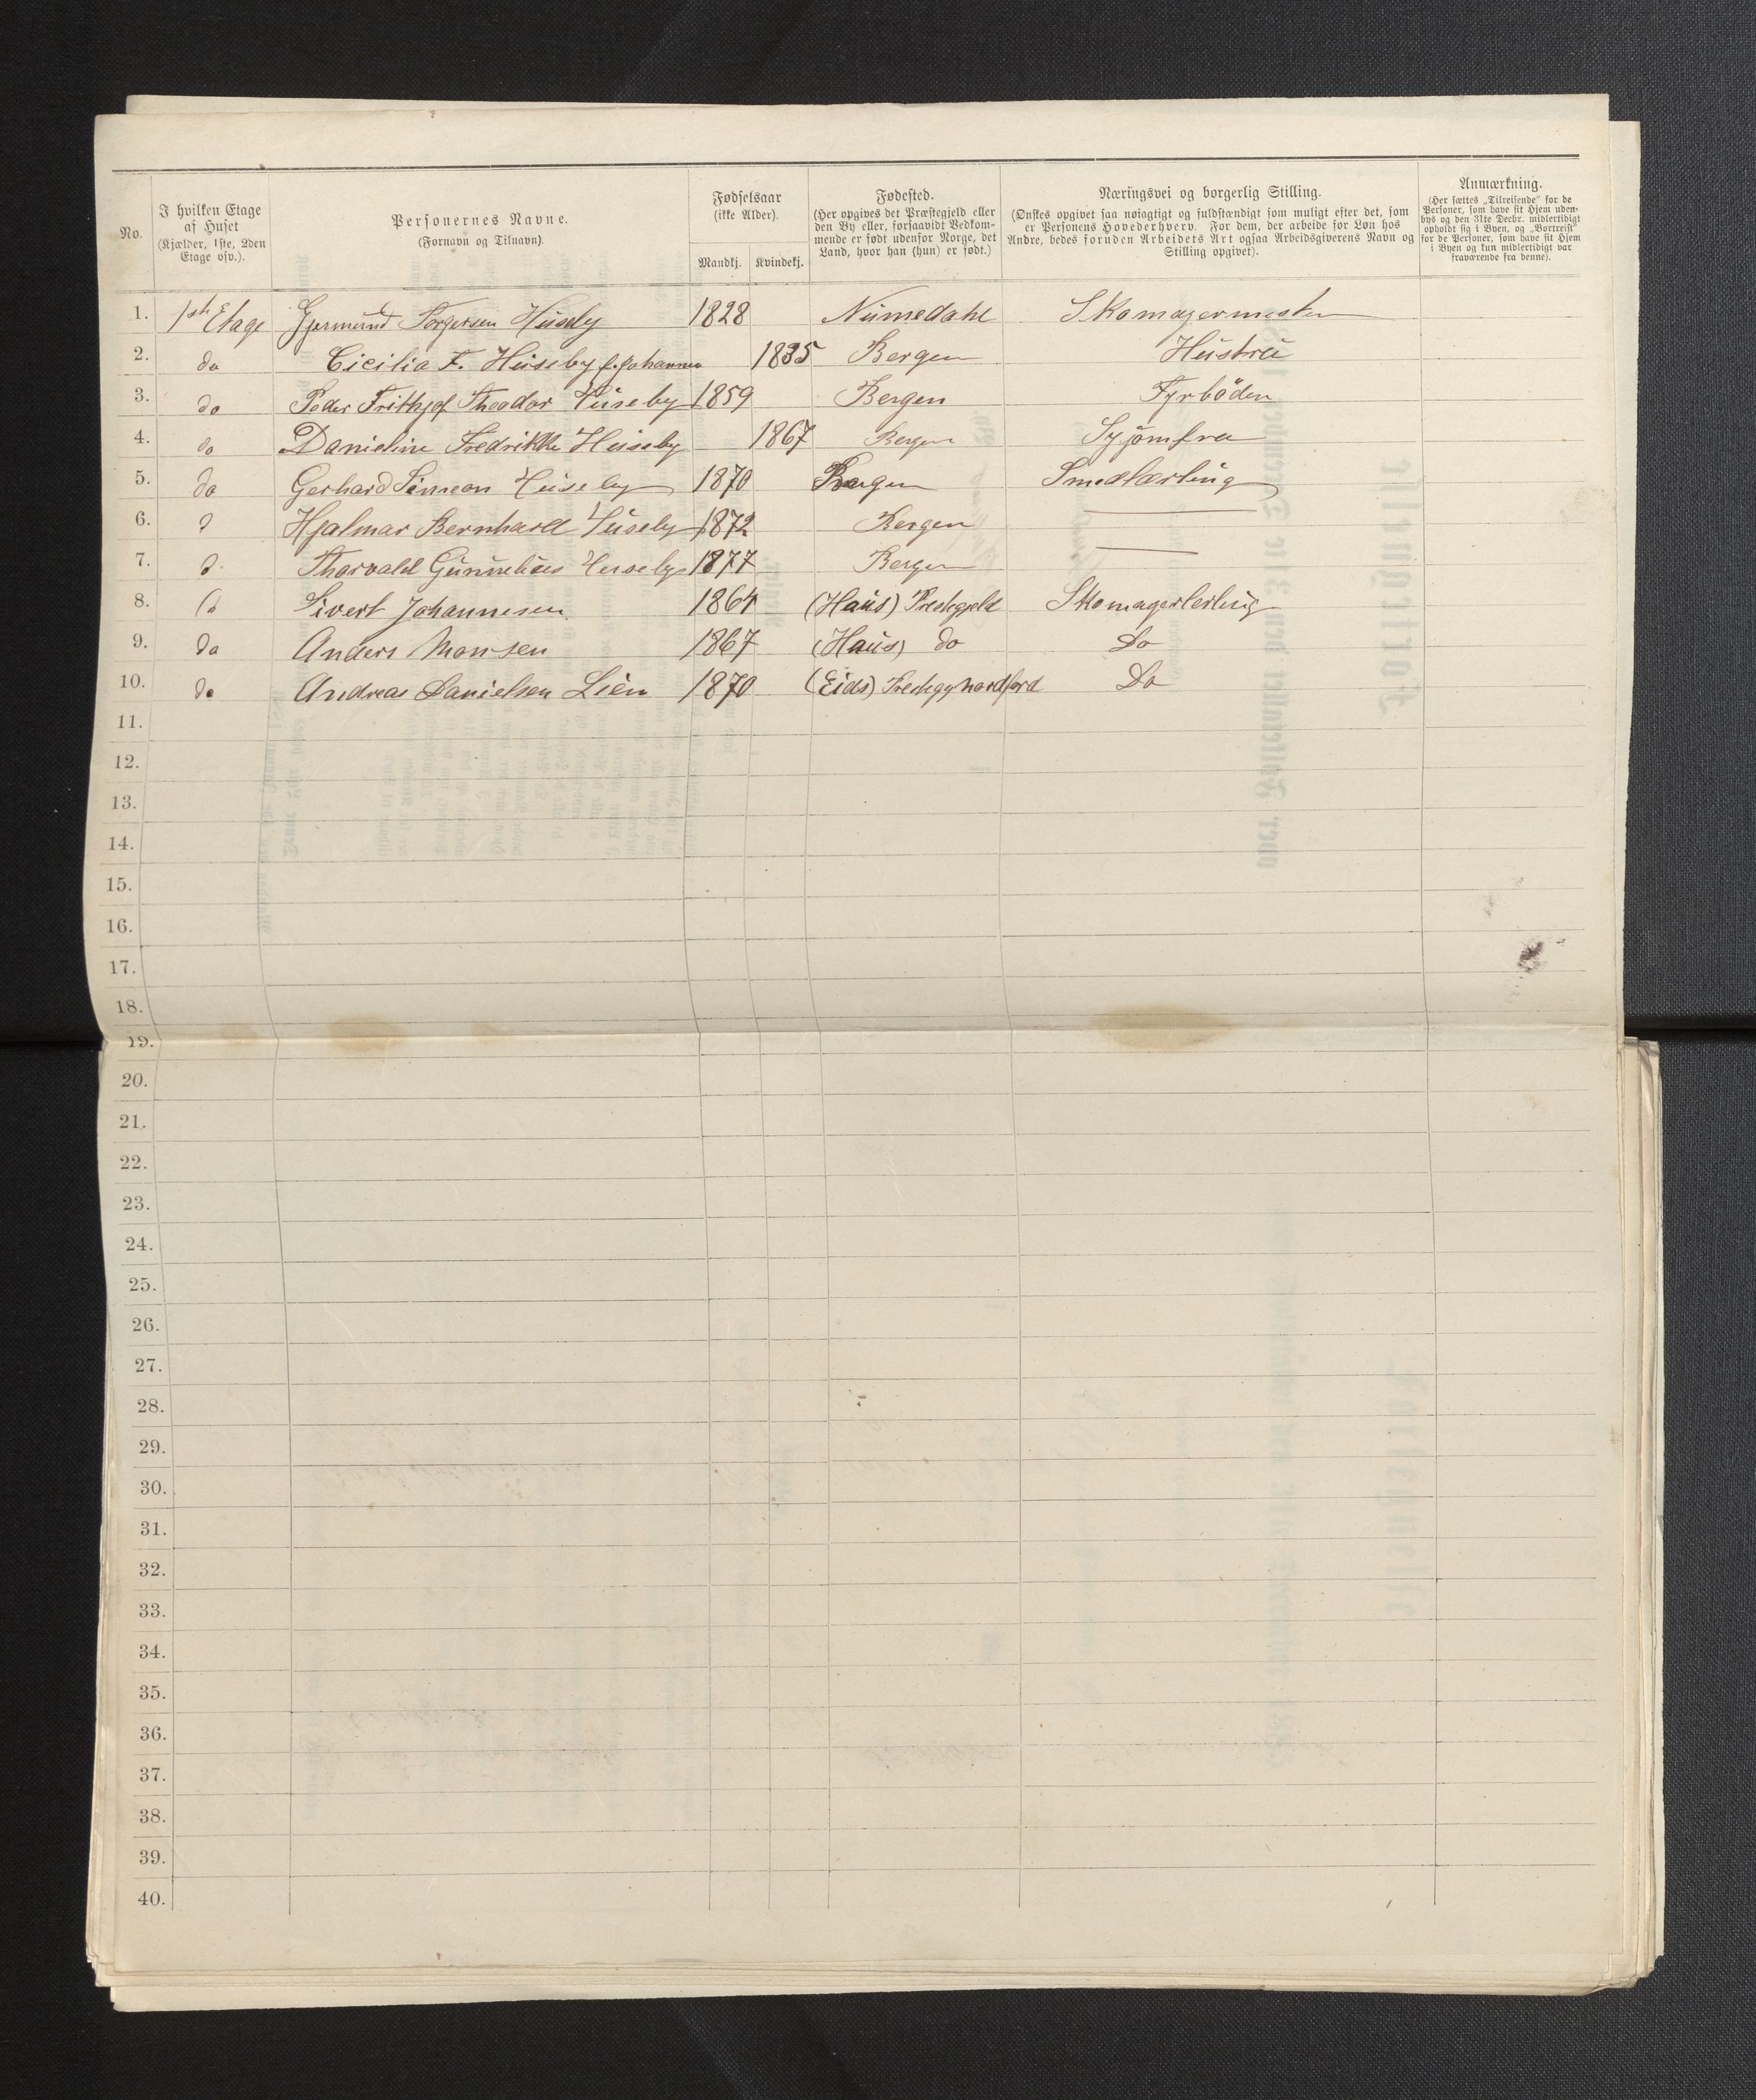 No.
I hvilken Etage af Huset (Kjælder, 1ste, 2den Etage osv.).
Personernes Navne. (Fornavn og Tilnavn).
Fødselsaar (ikke Alder).
Mandkj. Kvindekj.
Fødested. (Her opgives det Præstegjeld eller den By eller, forsaavidt Vedkommende er født udenfor Norge, det Land, hvor han (hun) er født.)
Næringsvei og borgerlig Stilling. (Ønskes opgivet saa nøiagtigt og fuldstændigt som muligt efter det, som er Personens Hovederhverv. For dem, der arbeide for Løn hos Andre, bedes foruden Arbeidets Art ogsaa Arbeidsgiverens Navn og Stilling opgivet).
Anmærkning. (Her sættes „Tilreisende“ for de Personer, som have sit Hjem udenbys og den 31te Decbr. midlertidigt opholdt sig i Byen, og „Bortreist“ for de Personer, som have sit Hjem i Byen og kun midlertidigt var fraværende fra denne).
1. 1ste Etage Gjermund Torgersen Huseby 1828 Numedahl Skomagermester
2. do Cicilia F. Huseby f. Johannes 1835 Bergen Hustru
3. do Peder Frithjof Theodor Huseby 1859 Bergen Fyrböder
4. do Danieline Fredrikke Huseby 1867 Bergen Syjomfru
5. do Gerhard Simeon Huseby 1870 Bergen Smedlærling
6. d Hjalmar Bernhard Huseby 1872 Bergen —
7. d Thorvald Gunnelius Huseby 1877 Bergen —
8. do Sivert Johannesen 1864 (Haus) Prestegjeld Skomagerlerling
9. do Anders Monsen 1867 (Haus) do Do
10. do Andreas Danielsen Lien 1870 (Eids) Prestegj nordfjord Do
11.
12.
13.
14.
15.
16.
17.
18.
19.
20.
21.
22.
23.
24.
25.
26.
27.
28.
29.
30.
31.
32.
33.
34.
35.
36.
37.
38.
39.
40.